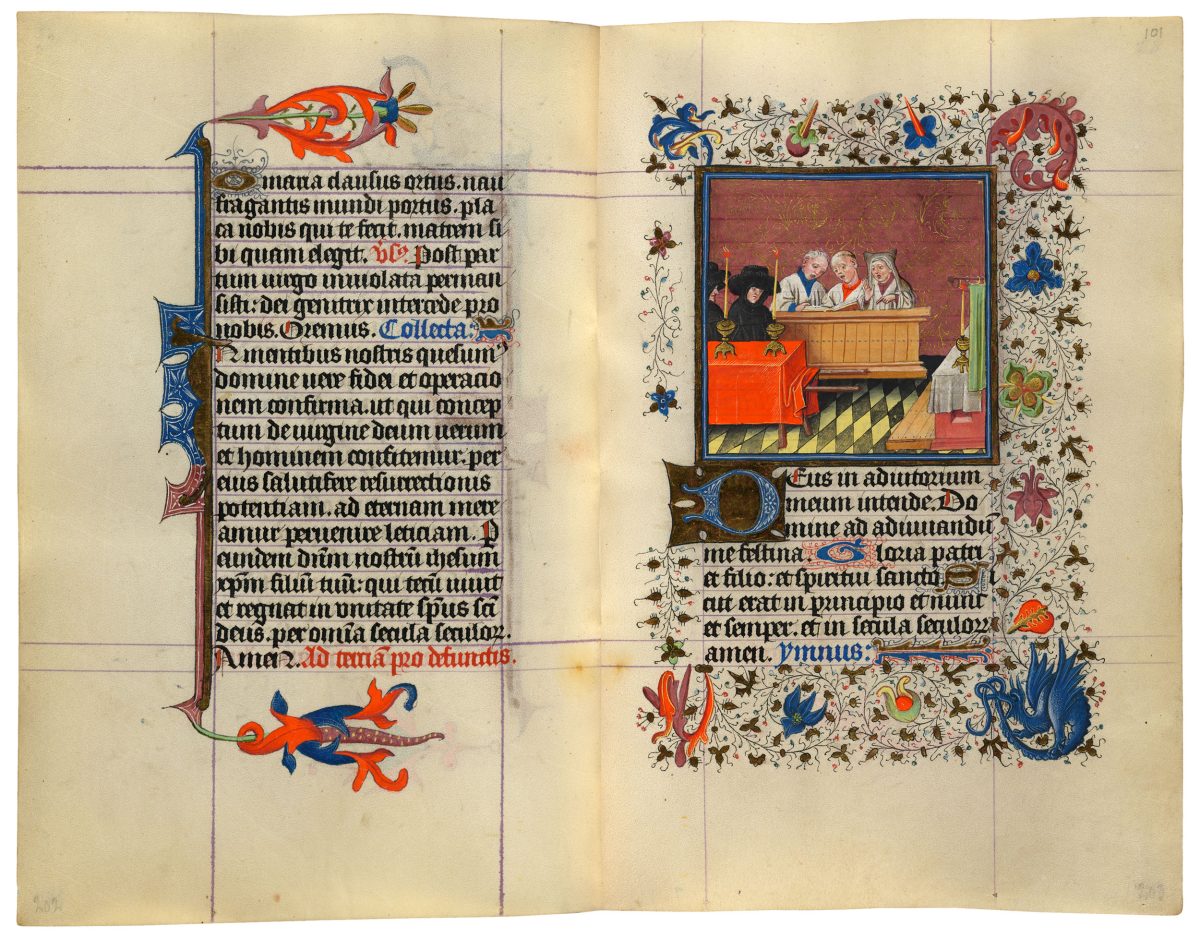 O maria clausus ortus. nau
fragantis mundi portus. pla
ca nobis qui te fecit. matrem si
bi quam elegit. vs̄ Post par
tum uirgo inuiolata perman
sisti: dei genitrix intercede pro
nobis. Oremus. Collecta:
IN mentibus nostris quesum9
domine uere fidei et operacio
nem confirma. ut qui concep
tum de uirgine deum uerum
et hominem confitemur. per
eius salutifere resurrectionis
potentiam. ad eternam mere
amur peruenire leticiam. P
eundem dn̄m nostrū ihesum
xp̄m filiū tuū: qui tecū uiuit
et regnat in vnitate sp̄us sc̄i
deus. per om̄ia secula seculoꝝ.
Amen. Ad terciā pro defunctis.
202
101
DEus in adiutorium
meum intende. Do
mine ad adiuuandū
me festina. Gloria patri
et filio: et spiritui sancto Si
cut erat in principio et nunc
et semper. et in secula seculoꝝ
amen. ymnus:
203